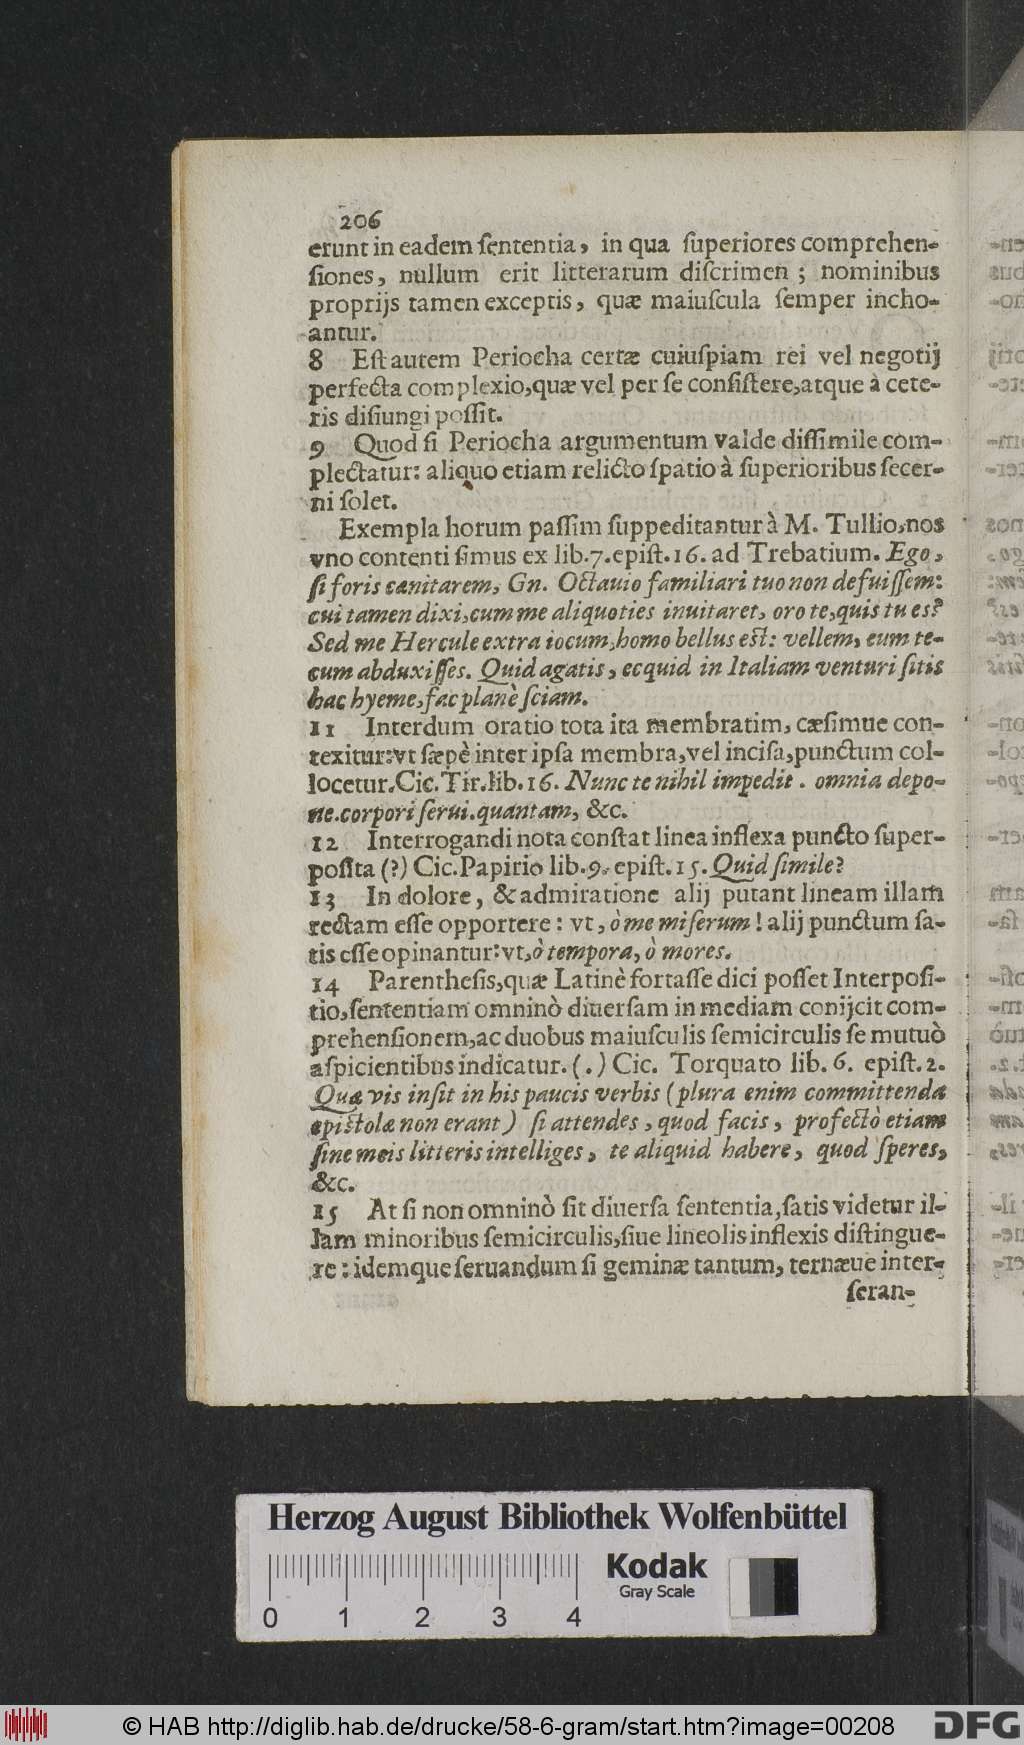 206
erunt in eadem ſententia, in qua ſuperiores comprehen-
ſiones, nullum erit litterarum diſcrimen ; nominibus
proprijs tamen exceptis, quæ maiuſcula ſemper incho-
antur.
8 Eſt autem Periocha certæ cuiuſpiam rei vel negotij
perfecta complexio, quæ vel per ſe conſiſtere, atque à cete-
ris diſiungi poſſit.
9 Quod ſi Periocha argumentum valde diſſimile com-
plectatur: aliquo etiam relicto ſpatio à ſuperioribus ſecer-
ni ſolet.
Exempla horum paſſim ſuppeditantur à M. Tullio, nos
vno contenti ſimus ex lib. 7. epiſt. 16. ad Trebatium. Ego,
ſi foris cœnitarem, Gn. Octauio familiari tuo non defuiſſem:
cui tamen dixi, cum me aliquoties inuitaret, oro te, quis tu es?
Sed me Hercule extra iocum, homo bellus eſt: vellem, eum te-
cum abduxiſſes. Quid agatis, ecquid in Italiam venturi ſitis
hac hyeme, fac planè ſciam.
11 Interdum oratio tota ita membratim, cæſimue con-
texitur: vt ſæpè inter ipſa membra, vel inciſa, punctum col-
locetur. Cic. Tir. lib. 16. Nunc te nihil impedit . omnia depo-
ne. corpori ſerui. quantam, &c.
12 Interrogandi nota conſtat linea inflexa puncto ſuper-
poſita (?) Cic. Papirio lib. 9. epiſt. 15. Quid ſimile?
13 In dolore, & admiratione alij putant lineam illam
rectam eſſe opportere: vt, ò me miſerum! alij punctum ſa-
tis eſſe opinantur: vt, ò tempora, ò mores.
14 Parentheſis, quæ Latinè fortaſſe dici poſſet Interpoſi-
tio, ſententiam omninò diuerſam in mediam conijcit com-
prehenſionem, ac duobus maiuſculis ſemicirculis ſe mutuò
aſpicientibus indicatur. (.) Cic. Torquato lib. 6. epiſt. 2.
Quæ vis inſit in his paucis verbis (plura enim committenda
epiſtolæ non erant) ſi attendes, quod facis, profectò etiam
ſine meis litteris intelliges, te aliquid habere, quod ſperes,
&c.
15 At ſi non omninò ſit diuerſa ſententia, ſatis videtur il-
lam minoribus ſemicirculis, ſiue lineolis inflexis diſtingue-
re: idemque ſeruandum ſi geminæ tantum, ternæue inter-
ſeran-
Herzog August Bibliothek Wolfenbüttel
Kodak
Gray Scale
0 1 2 3 4
© HAB http://diglib.hab.de/drucke/58-6-gram/start.htm?image=00208
DFG